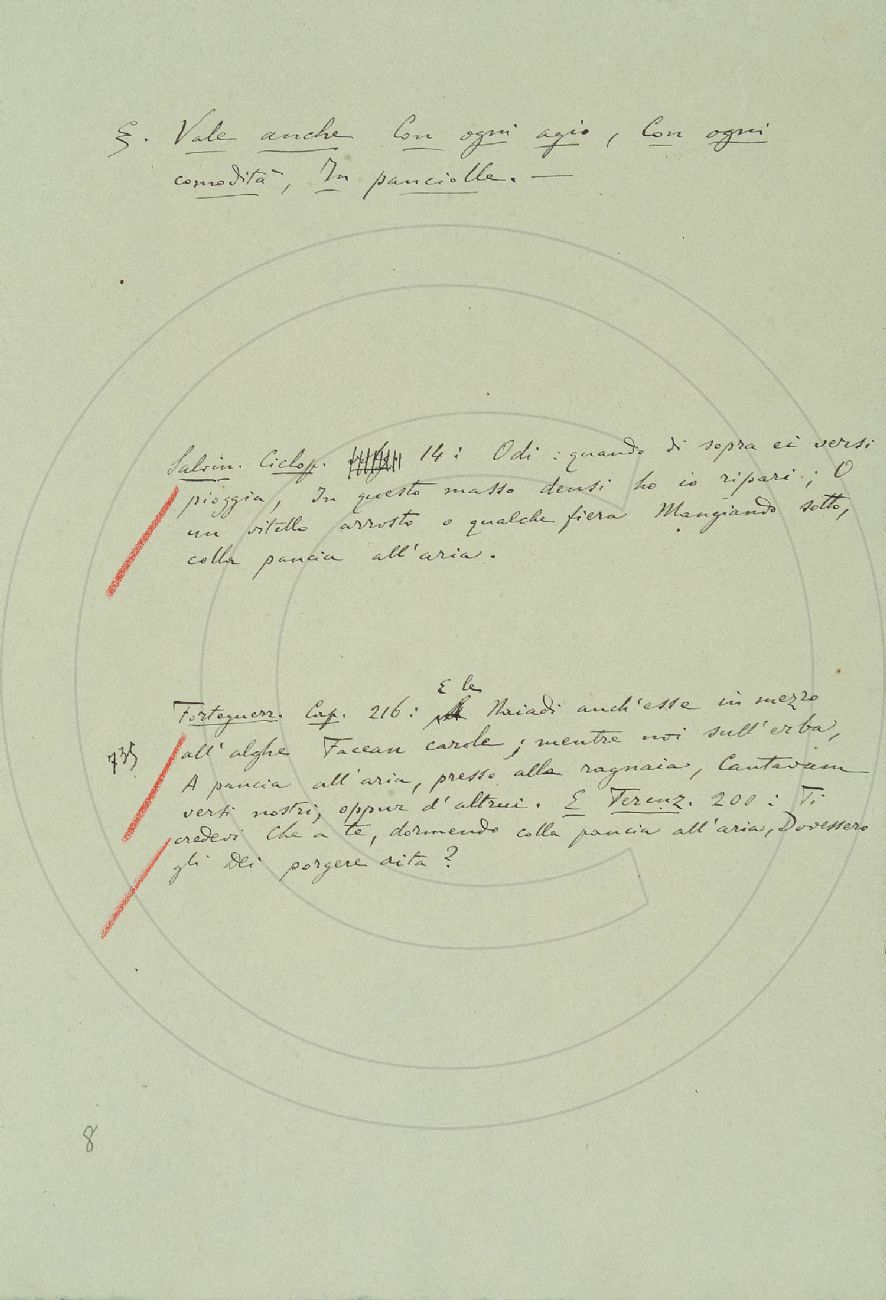 §. Vale anche Con ogni agio, Con ogni
comodità, In panciolle. —
Salvin. Ciclop. 14: Odi: quando di sopra ei versi
pioggia, In questo masso densi ho io ripari; O
un vitello arrosto o qualche fiera Mangiando sotto,
colla pancia all'aria.
E le
Forteguerr. Cap. 216: Naiadi anch'esse in mezzo
all'alghe Facean carole; mentre noi sull'erba,
735
A pancia all'aria, presso alla ragnaia, Cantavam
versi nostri, oppur d'altrui. E Terenz. 200: Ti
credevi che a te, dormendo colla pancia all'aria, Dovessero
gli Dei porgere aita?
8